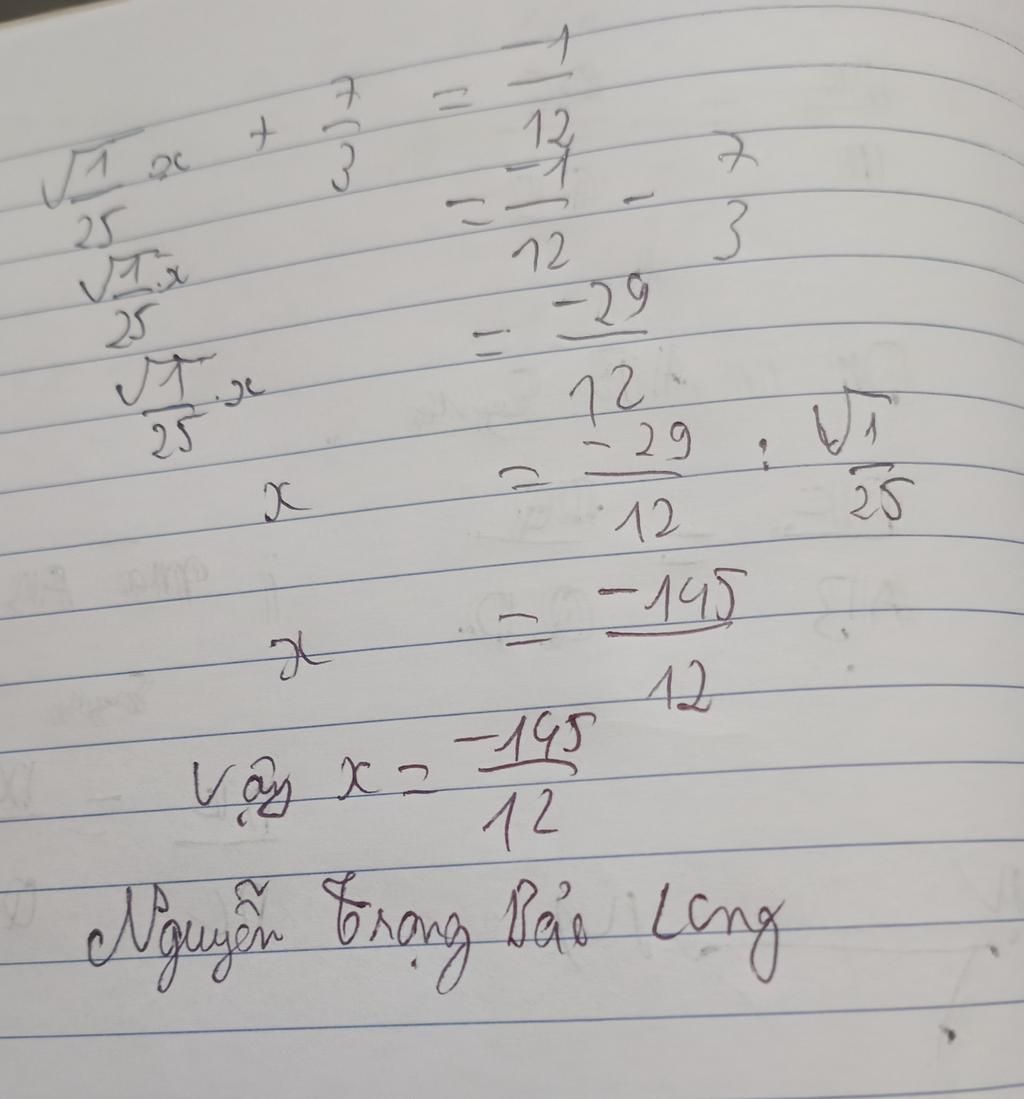 √1/25 x + 7/3 = -1/12
√1/25 .x = -1/12 - 7/3
√1/25 .x = -29/12
x = -29/12 : √1/25
x = -145/12
Vậy x = -145/12
Nguyễn Trọng Bảo Long